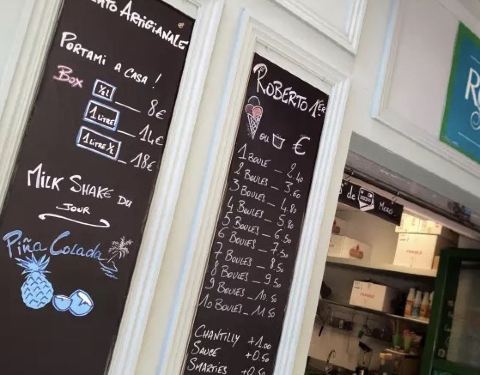 Artigianale
Portami a casa !
Box
½ l — 8€
1 litre — 14€
1 litre ½ — 18€
Milk Shake du
jour
Piña Colada
Roberto 1er
ou €
1 Boule — 2.40
2 Boules — 3.60
3 Boules — 4.80
4 Boules — 5.80
5 Boules — 6.50
6 Boules — 7.50
7 Boules — 8.50
8 Boules — 9.50
9 Boules — 10.50
10 Boules — 11.50
Chantilly +1.00
Sauce +0.50
Smarties +0.50
de